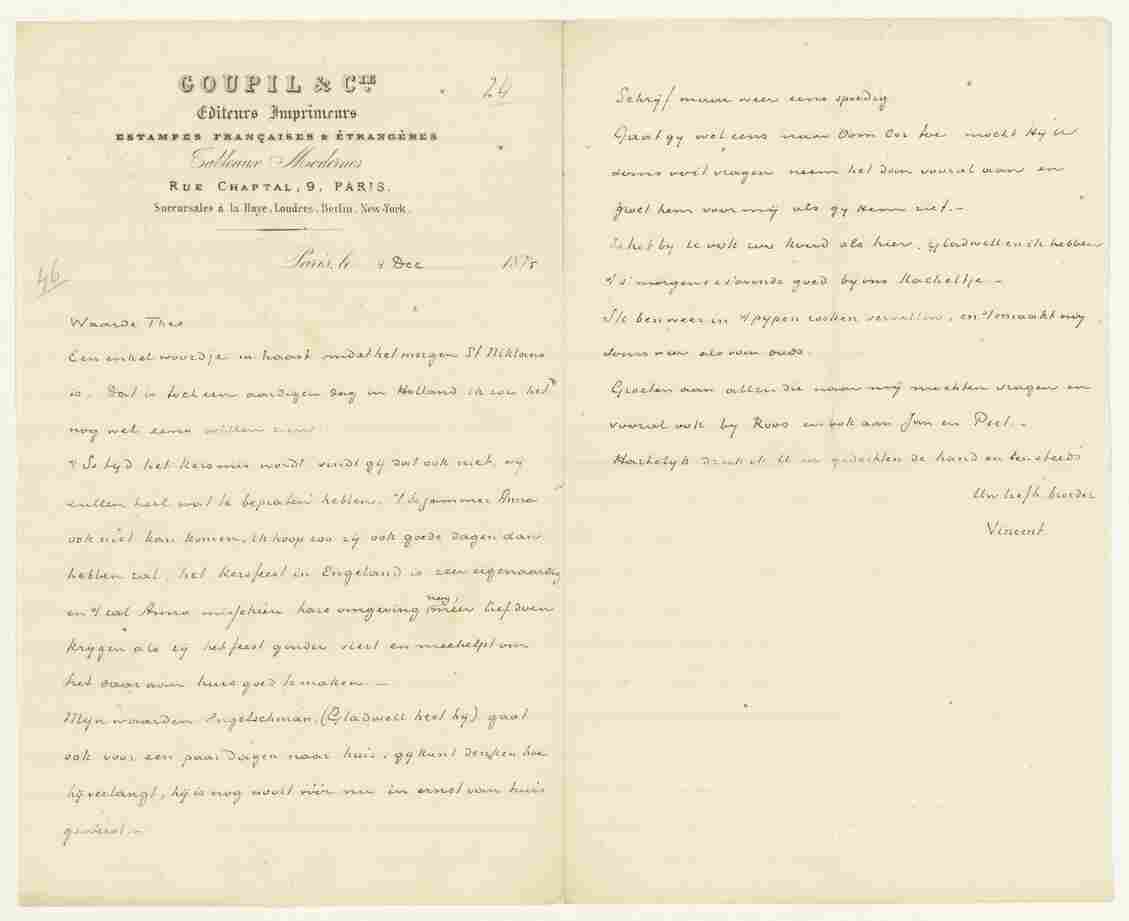 GOUPIL & CIE
Editeurs Imprimeurs
ESTAMPES FRANÇAISES & ÉTRANGÈRES
Tableaux Modernes
RUE CHAPTAL, 9, PARIS.
Succursales à la Haye, Londres, Berlin, New-York.
26
Paris, le 4 Dec 1875
46
Waarde Theo
Een enkel woordje in haast omdat het morgen St Niklaas
is. Dat is toch een aardigen dag in Holland ik zou het
nog wel eens willen zien.
't Is tyd het kersmis wordt vindt gij dat ook niet, wij
zullen heel wat te bepraten hebben. 't Is jammer Anna
ook niet kan komen, ik hoop zoo zij ook goede dagen dan
hebben zal, het kersfeest in Engeland is zeer eigenaardig
en 't zal Anna misschien hare omgeving nog meer lief doen
krijgen als zij het feest ginder viert en meehelpt om
het daar aan huis goed te maken. —
Mijn waarden Engelschman, (Gladwell heet hij) gaat
ook voor een paar dagen naar huis, gy kunt denken hoe
hij verlangt, hij is nog nooit vóór nu in ernst van huis
geweest. —
Schrijf maar weer eens spoedig
Gaat gy wel eens naar Oom Cor toe mocht Hij U
soms ooit vragen neem het dan vooral aan en
groet hem voor mij als gy Hem ziet. —
Is het by U ook zoo koud als hier, Gladwell en ik hebben
't 's morgens & 's avonds goed by ons kacheltje. —
Ik ben weer in 't pypen rooken vervallen, en 't smaakt my
soms weer als van ouds.
Groeten aan allen die naar mij mochten vragen en
vooral ook by Roos en ook aan Jan en Piet. —
Hartelyk druk ik U in gedachten de hand en ten steeds
Uw liefh. broeder
Vincent